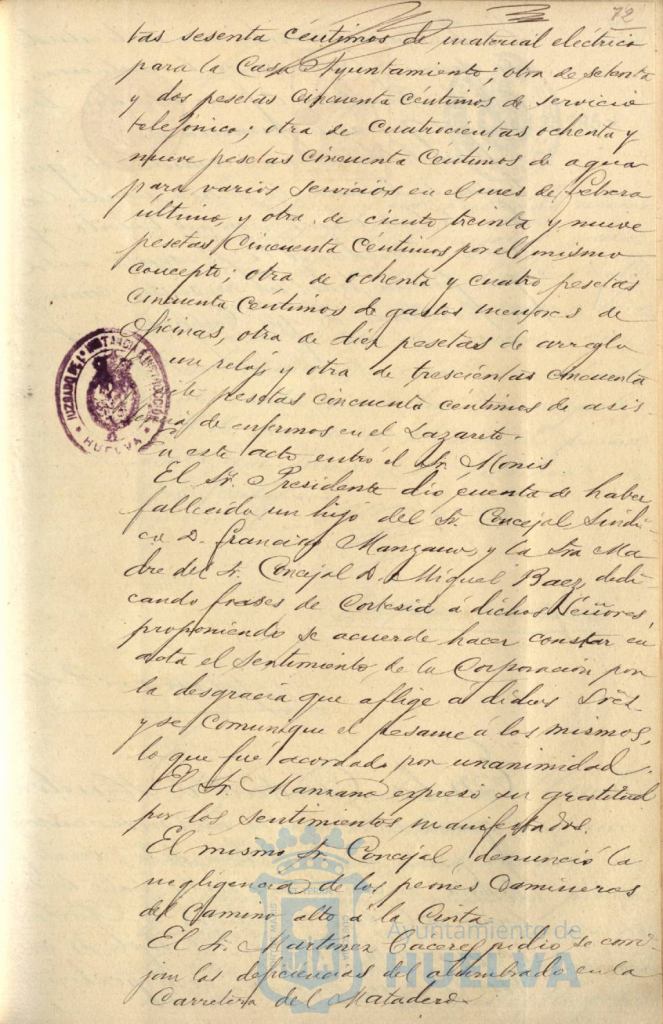 72
tas sesenta céntimos de material eléctrico
para la Casa Ayuntamiento; otra de setenta
y dos pesetas cincuenta céntimos de servicio
telefónico; otra de cuatrocientas ochenta y
nueve pesetas cincuenta céntimos de agua
para varios servicios en el mes de febrero
último, y otra de ciento treinta y nueve
pesetas cincuenta céntimos por el mismo
concepto; otra de ochenta y cuatro pesetas
cincuenta céntimos de gastos menores de
oficinas, otra de diez pesetas de arreglo
un reloj y otra de trescientas cincuenta
pesetas cincuenta céntimos de asis
de enfermos en el Lazareto.
En este acto entró el Sr. Monis
El Sr. Presidente dió cuenta de haber
fallecido un hijo del Sr. Concejal Síndi
co D. Francisco Manzano, y la Sra Ma
dre del Sr. Concejal D. Miguel Baez, dedi
cando frases de cortesia á dichos Señores,
proponiendo se acuerde hacer constar en
acta el sentimiento de la Corporación por
la desgracia que aflige á dichos Sres.
y se comunique el pésame á los mismos,
lo que fué acordado por unanimidad.
El Sr. Manzano expresó su gratitud
por los sentimientos manifestados.
El mismo Sr. Concejal, denunció la
negligencia de los peones Camineros
del Camino alto á la Cinta
El Sr. Martínez Caceres pidió se corri
jan las deficiencias del alumbrado en la
Carretera del Matadero
JUZGADO DE 1ª INSTANCIA E INSTRUCCION
HUELVA
Ayuntamiento de
HUELVA